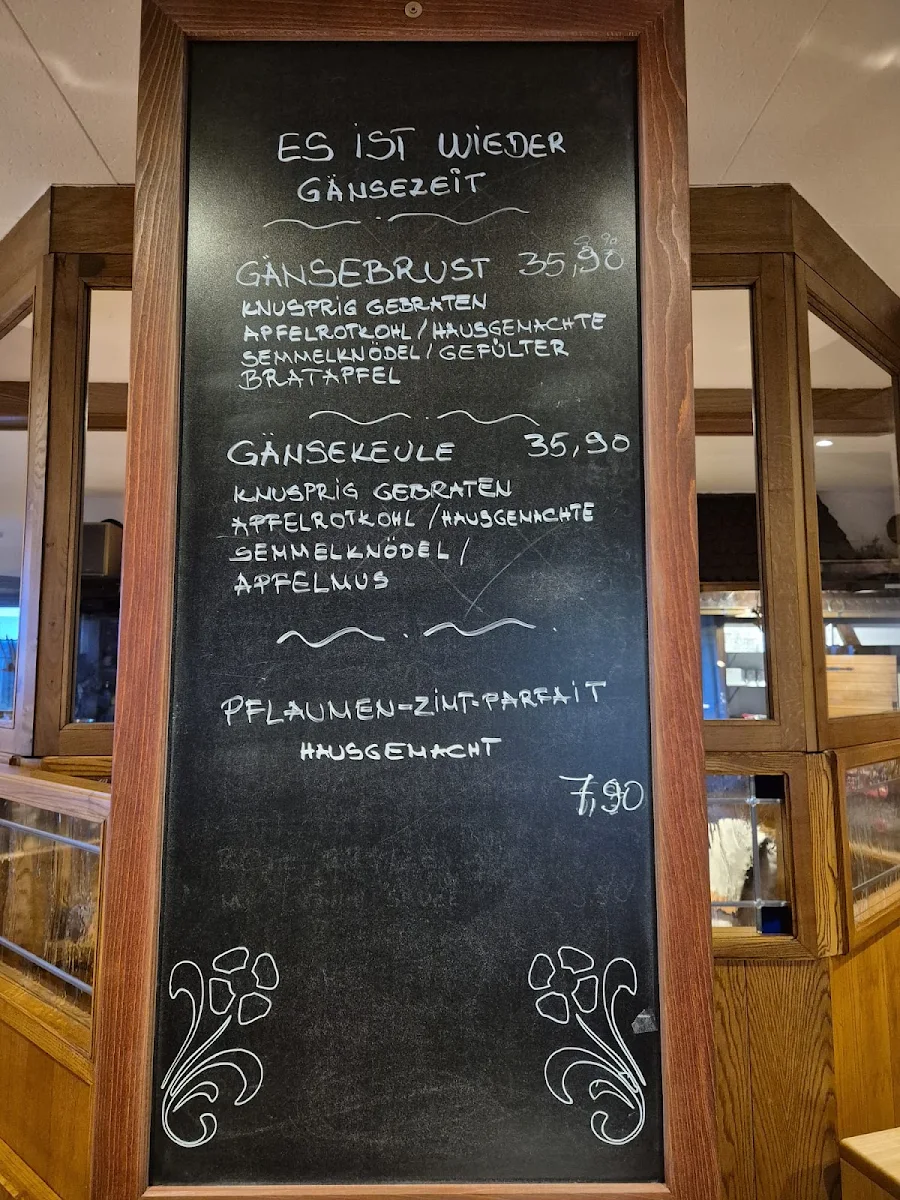 ES IST WIEDER
GÄNSEZEIT
GÄNSEBRUST 35,90
KNUSPRIG GEBRATEN
APFELROTKOHL / HAUSGEMACHTE
SEMMELKNÖDEL / GEFÜLTER
BRATAPFEL
GÄNSEKEULE 35,90
KNUSPRIG GEBRATEN
APFELROTKOHL / HAUSGEMACHTE
SEMMELKNÖDEL /
APFELMUS
PFLAUMEN-ZIMT-PARFAIT
HAUSGEMACHT
7,90